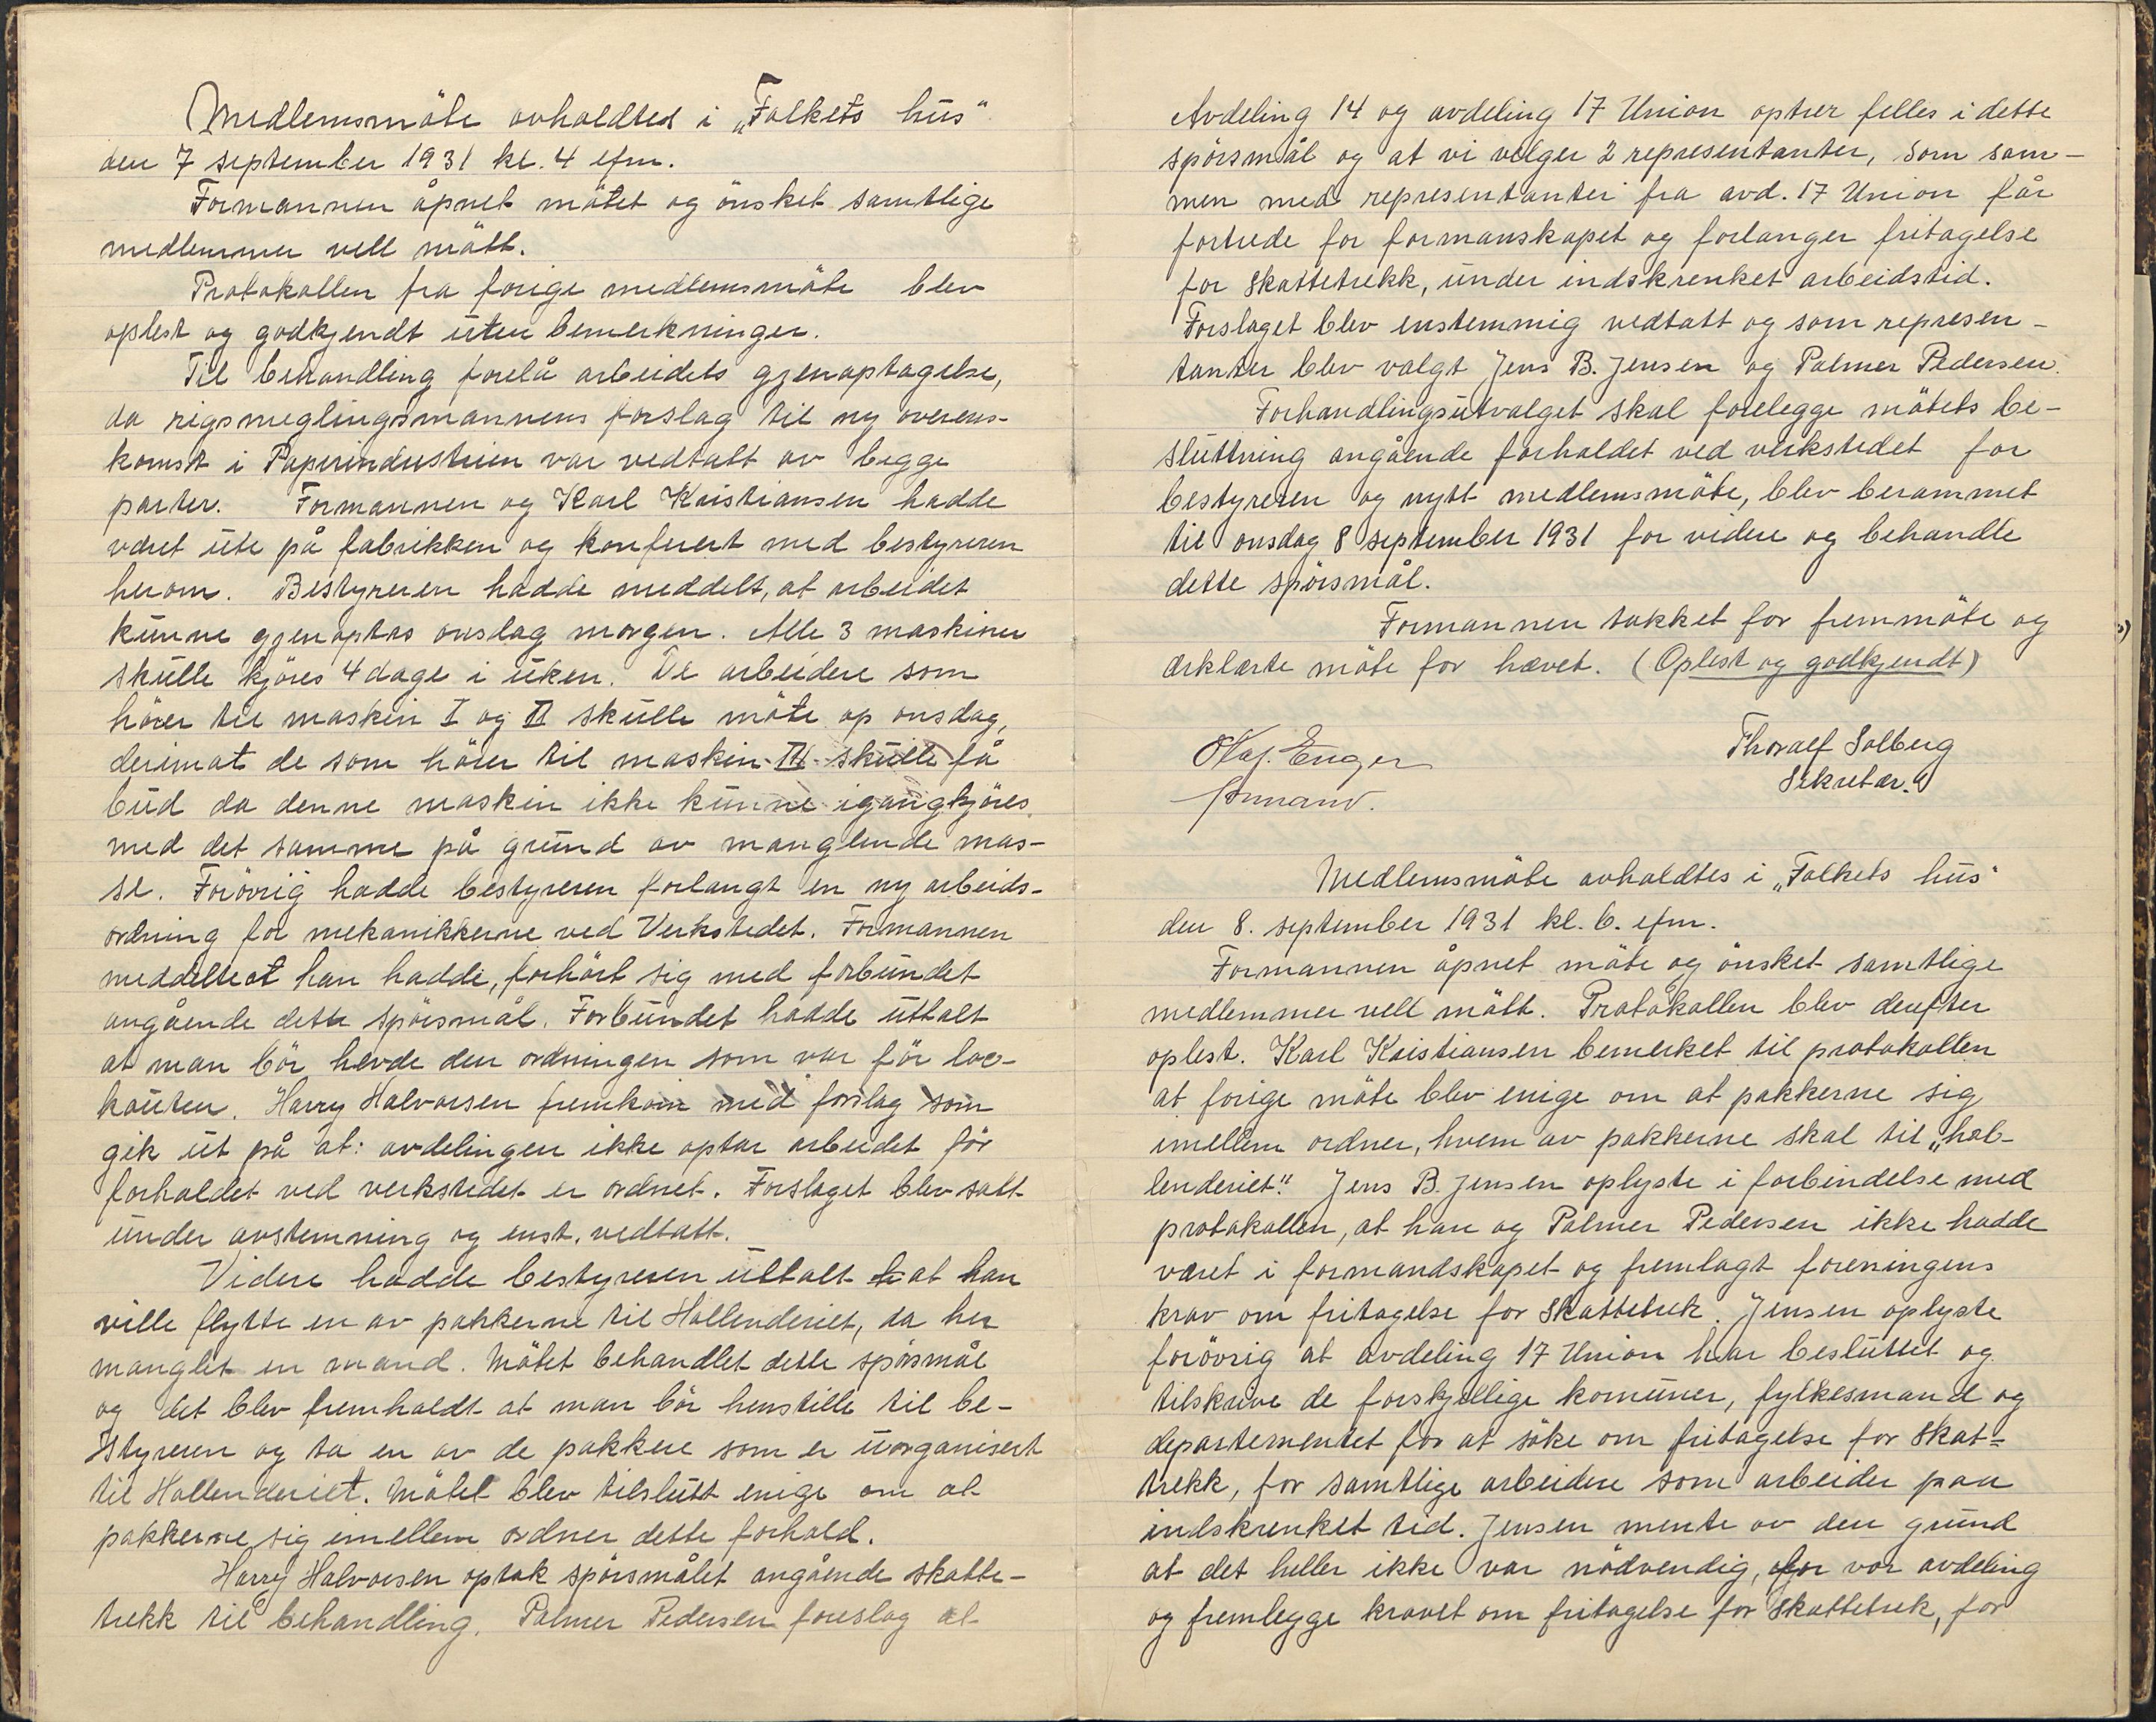 Medlemsmöte avholdtes i „Folkets hus"
den 7 september 1931 kl. 4 efm.
Formannen åpnet mötet og önsket samtlige
medlemmer vell mött.
Protokollen fra forige medlemsmöte blev
oplest og godkjendt uten bemerkninger.
Til behandling forelå arbeidets gjenoptagelse,
da rigsmeglingsmannens forslag til ny overens-
komst i Papirindustrien var vedtatt av begge
parter. Formannen og Karl Kristiansen hadde
været ute på fabrikken og konferert med bestyreren
herom. Bestyreren hadde meddelt, at arbeidet
kunne gjenoptas onsdag morgen. Alle 3 maskiner
skulle kjöres 4 dage i uken. De arbeidere som
hörer til maskin I og II skulle möte op onsdag,
derimot de som hörer til maskin III skulle få
bud da denne maskin ikke kunne igangkjöres
med det samme på grund av manglende mas-
se. Forövrig hadde bestyreren forlangt en ny arbeids-
ordning for mekanikkerne ved Verkstedet. Formannen
meddelte at han hadde, forhört sig med forbundet
angående dette spörsmål. Forbundet hadde uttalt
at man bör hevde den ordningen som var för loc-
kouten. Harry Halvorsen fremkom med forslag som
gik ut på at: avdelingen ikke optar arbeidet för
forholdet ved verkstedet er ordnet. Forslaget blev satt
under avstemning og enst. vedtatt.
Videre hadde bestyreren uttalt at han
ville flytte en av pakkerne til Hollenderiet, da her
manglet en mand. Mötet behandlet dette spörsmål
og det blev fremholdt at man bör henstille til be-
styreren og ta en av de pakkere som er uorganisert
til Hollenderiet. Mötet blev tilslutt enige om at
pakkerne sig imellem ordner dette forhold.
Harry Halvorsen optok spörsmålet angående skatte-
trekk til behandling. Palmer Pedersen foreslog at
Avdeling 14 og avdeling 17 Union optrer felles i dette
spörsmål og at vi velger 2 representanter, som sam-
men med representanter fra avd. 17 Union får
fortrede for formanskapet og forlanger fritagelse
for skattetrekk, under indskrenket arbeidstid.
Forslaget blev enstemmig vedtatt og som represen-
tanter blev valgt Jens B. Jensen og Palmer Pedersen.
Forhandlingsutvalget skal forelegge mötets be-
sluttning angående forholdet ved verkstedet for
bestyreren og nytt medlemsmöte, blev berammet
til onsdag 8 september 1931 for videre og behandle
dette spörsmål.
Formannen takket for fremmöte og
ærklærte möte for hævet. (Oplest og godkjendt)
Olaf. Enger
formand.
Thoralf Solberg
Sekretær.
Medlemsmöte avholdtes i „Folkets hus"
den 8. september 1931 kl. 6. efm.
Formannen åpnet möte og önsket samtlige
medlemmer vell mött. Protokollen blev derefter
oplest. Karl Kristiansen bemerket til protokollen
at forige möte blev enige om at pakkerne sig
imellem ordner, hvem av pakkerne skal til „hol-
lenderiet". Jens B. Jensen oplyste i forbindelse med
protokollen, at han og Palmer Pedersen ikke hadde
været i formandskapet og fremlagt foreningens
krav om fritagelse for skattetrek. Jensen oplyste
forövrig at avdeling 17 Union har besluttet og
tilskrive de forskjellige komuner, fylkesmand og
departementet for at söke om fritagelse for skat=
trekk, for samtlige arbeidere som arbeider paa
indskrenket tid. Jensen mente av den grund
at det heller ikke var nödvendig, for vor avdeling
og fremlegge kravet om fritagelse for skattetrek, for